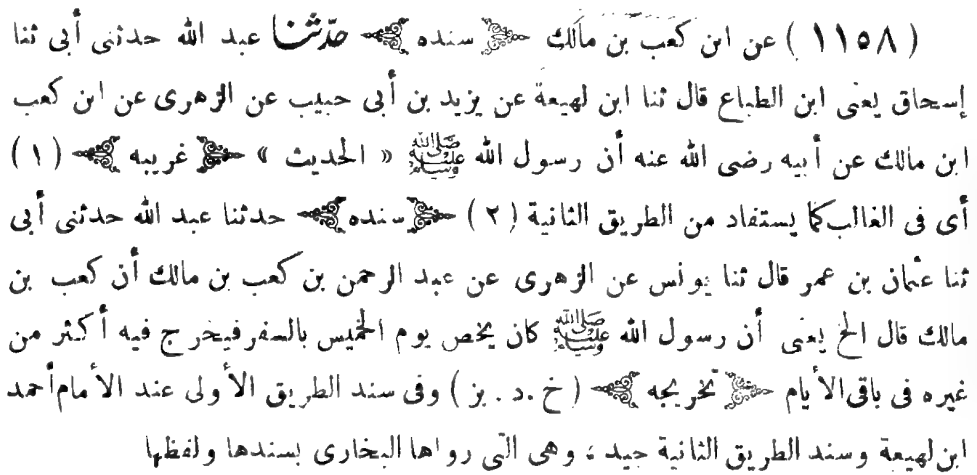 ( ١١٥٨ ) عن ابن كعب بن مالك سنده حدّثنا عبد الله حدثنى أبى ثنا
إسحاق يعنى ابن الطباع قال ثنا ابن لهيعة عن يزيد بن أبى حبيب عن الزهرى عن ابن كعب
ابن مالك عن أبيه رضى الله عنه أن رسول الله ﷺ « الحديث » غريبه ( ١ )
أى فى الغالب كما يستفاد من الطريق الثانية ( ٢ ) سنده حدثنا عبد الله حدثنى أبى
ثنا عثمان بن عمر قال ثنا يونس عن الزهرى عن عبد الرحمن بن كعب بن مالك أن كعب بن
مالك قال الخ يعنى أن رسول الله ﷺ كان يخص يوم الخميس بالسفر فيخرج فيه أكثر من
غيره فى باقى الأيام تخريجه ( خ . د . بز ) وفى سند الطريق الأولى عند الأمام أحمد
ابن لهيعة وسند الطريق الثانية جيد ، وهى التى رواها البخارى بسندها ولفظها